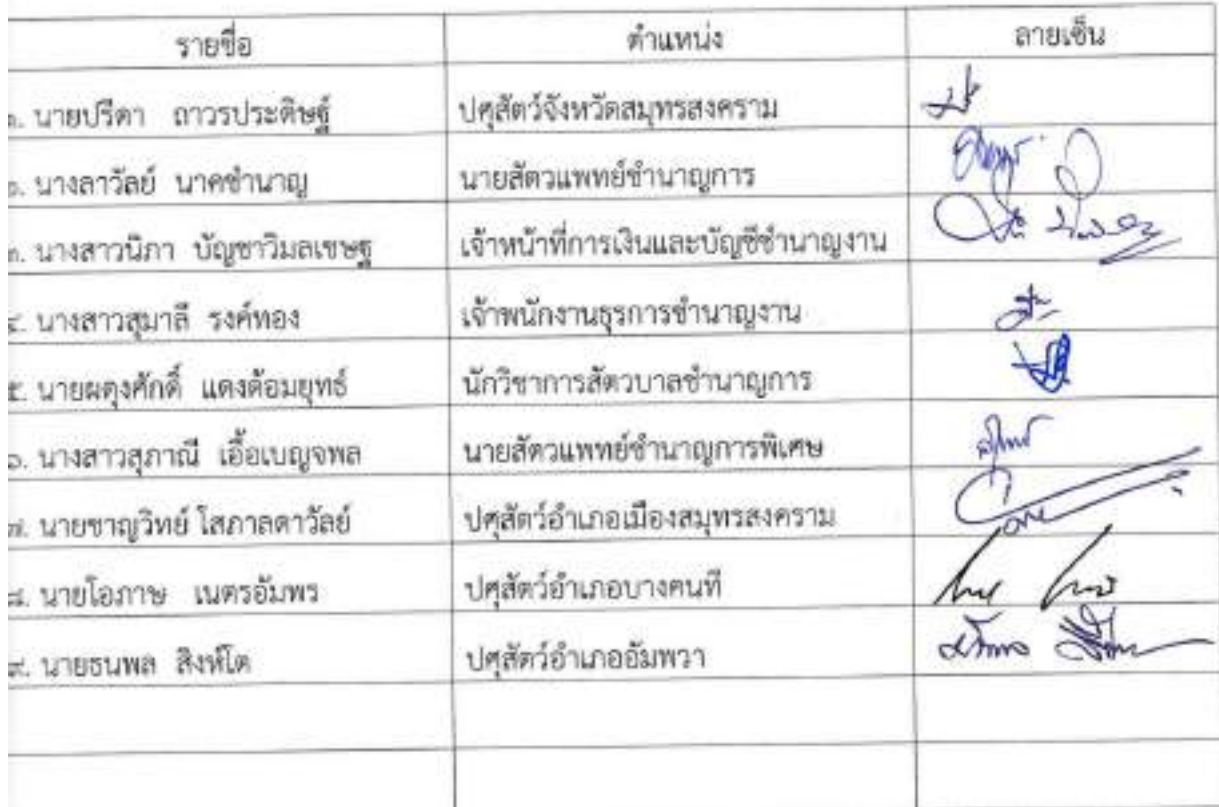 รายชื่อ ตำแหน่ง ลายเซ็น
๑. นายปรีดา ถาวรประดิษฐ์ ปศุสัตว์จังหวัดสมุทรสงคราม
๒. นางลาวัลย์ นาคชำนาญ นายสัตวแพทย์ชำนาญการ
๓. นางสาวนิภา บัญชาวิมลเชษฐ เจ้าหน้าที่การเงินและบัญชีชำนาญงาน
๔. นางสาวสุมาลี รงค์ทอง เจ้าพนักงานธุรการชำนาญงาน
๕. นายผดุงศักดิ์ แดงด้อมยุทธ์ นักวิชาการสัตวบาลชำนาญการ
๖. นางสาวสุภาณี เอื้อเบญจพล นายสัตวแพทย์ชำนาญการพิเศษ
๗. นายชาญวิทย์ โสภาลดาวัลย์ ปศุสัตว์อำเภอเมืองสมุทรสงคราม
๘. นายโอภาษ เนตรอัมพร ปศุสัตว์อำเภอบางคนที
๙. นายธนพล สิงห์โต ปศุสัตว์อำเภออัมพวา